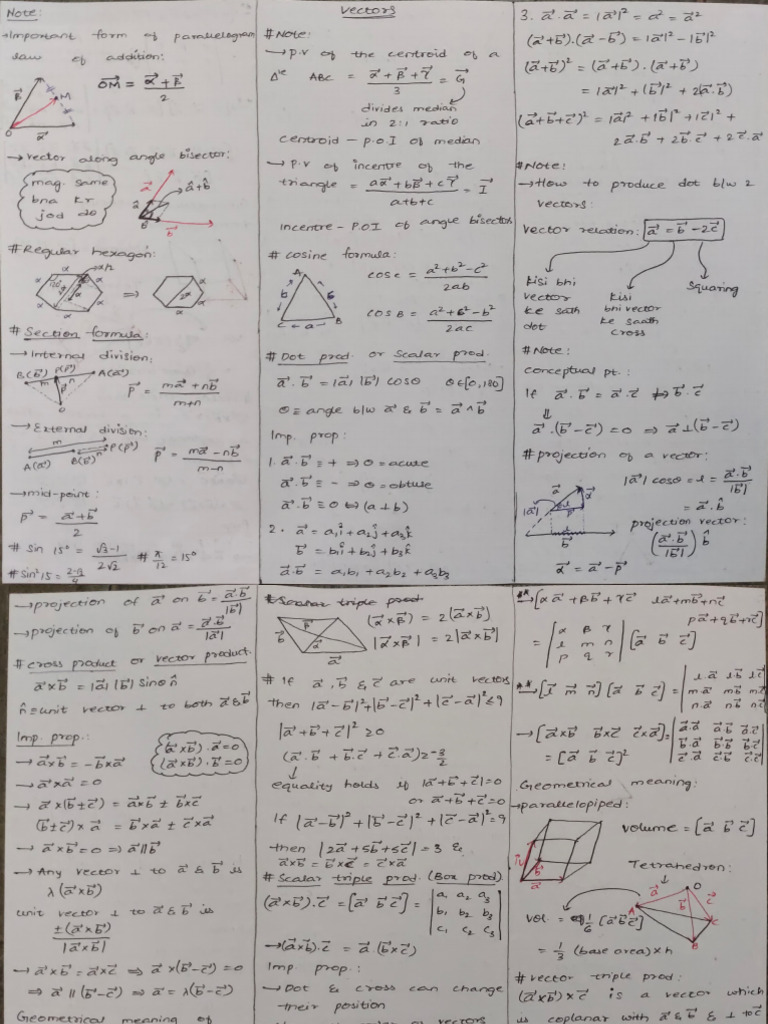 Note:
→ Important form of parallelogram
law of addition:
OM⃗ = (α⃗ + β⃗)/2
β⃗
M
O
α⃗
→ vector along angle bisector:
mag. same
bna kr
jod do
a⃗
â+b̂
b⃗
# Regular hexagon:
⇒
# Section formula:
→ Internal division:
B(b⃗) P(p⃗) A(a⃗)
O
p⃗ = (ma⃗ + nb⃗)/(m+n)
→ External division:
m
n
A(a⃗) B(b⃗) P(p⃗)
p⃗ = (ma⃗ - nb⃗)/(m-n)
→ mid-point:
p⃗ = (a⃗+b⃗)/2
# sin 15° = (√3-1)/(2√2) # π/12 = 15°
# sin²15 = (2-√3)/4
Vectors
# Note:
→ P.V of the centroid of a
Δle ABC = (α⃗ + β⃗ + γ⃗)/3 = G⃗
divides median
in 2:1 ratio
centroid - P.O.I of median
→ P.V of incentre of the
triangle = (aα⃗ + bβ⃗ + cγ⃗)/(a+b+c) = I⃗
Incentre - P.O.I of angle bisectors
# cosine formula:
A
b
C ← a → B
cos c = (a²+b²-c²)/2ab
cos B = (a²+c²-b²)/2ac
# Dot prod. or Scalar prod.
a⃗.b⃗ = |a⃗| |b⃗| cosθ θ∈[0,180]
θ = angle b/w a⃗ & b⃗ = a⃗ ^ b⃗
Imp. prop:
1. a⃗.b⃗ = + ⇒ θ = acute
a⃗.b⃗ = - ⇒ θ = obtuse
a⃗.b⃗ = 0 ⇔ (a ⊥ b)
2. a⃗ = a₁î + a₂ĵ + a₃k̂
b⃗ = b₁î + b₂ĵ + b₃k̂
a⃗.b⃗ = a₁b₁ + a₂b₂ + a₃b₃
3. a⃗.a⃗ = |a⃗|² = a² = a⃗²
(a⃗+b⃗).(a⃗-b⃗) = |a⃗|² - |b⃗|²
(a⃗+b⃗)² = (a⃗+b⃗).(a⃗+b⃗)
= |a⃗|² + |b⃗|² + 2(a⃗.b⃗)
(a⃗+b⃗+c⃗)² = |a⃗|² + |b⃗|² + |c⃗|² +
2a⃗.b⃗ + 2b⃗.c⃗ + 2c⃗.a⃗
# Note:
→ How to produce dot b/w 2
vectors:
vector relation: a⃗ = b⃗ - 2c⃗
kisi bhi
vector
ke sath
dot
kisi
bhi vector
ke saath
cross
Squaring
# Note:
conceptual pt.:
If a⃗.b⃗ = a⃗.c⃗ ⇏ b⃗.c⃗
⇓
a⃗.(b⃗-c⃗) = 0 ⇒ a⃗ ⊥ (b⃗-c⃗)
# projection of a vector:
|a⃗| cosθ = l = (a⃗.b⃗)/|b⃗|
= a⃗.b̂
projection vector:
((a⃗.b⃗)/|b⃗|) b̂
α⃗ = a⃗ - p⃗
→ projection of a⃗ on b⃗ = (a⃗.b⃗)/|b⃗|
→ projection of b⃗ on a⃗ = (a⃗.b⃗)/|a⃗|
# cross product or vector product
a⃗×b⃗ = |a⃗| |b⃗| sinθ n̂
n̂ = unit vector ⊥ to both a⃗ & b⃗
Imp. prop.:
(a⃗×b⃗).a⃗ = 0
(a⃗×b⃗).b⃗ = 0
→ a⃗×b⃗ = -b⃗×a⃗
→ a⃗×a⃗ = 0
→ a⃗×(b⃗±c⃗) = a⃗×b⃗ ± b⃗×c⃗
(b⃗±c⃗)×a⃗ = b⃗×a⃗ ± c⃗×a⃗
→ a⃗×b⃗ = 0 ⇒ a⃗ ∥ b⃗
→ Any vector ⊥ to a⃗ & b⃗ is
λ(a⃗×b⃗)
unit vector ⊥ to a⃗ & b⃗ is
±(a⃗×b⃗)/|a⃗×b⃗|
→ a⃗×b⃗ = a⃗×c⃗ ⇒ a⃗×(b⃗-c⃗) = 0
⇒ a⃗ ∥ (b⃗-c⃗) ⇒ a⃗ = λ(b⃗-c⃗)
Geometrical meaning of
# Scalar triple prod
b⃗
a⃗
(α⃗×β⃗) = 2(a⃗×b⃗)
|α⃗×β⃗| = 2|a⃗×b⃗|
# If a⃗, b⃗ & c⃗ are unit vectors
then |a⃗-b⃗|²+|b⃗-c⃗|²+|c⃗-a⃗|² ≤ 9
|a⃗+b⃗+c⃗|² ≥ 0
(a⃗.b⃗ + b⃗.c⃗ + c⃗.a⃗) ≥ -3/2
equality holds if |a⃗+b⃗+c⃗| = 0
or a⃗+b⃗+c⃗ = 0
If |a⃗-b⃗|² + |b⃗-c⃗|² + |c⃗-a⃗|² = 9
then |2a⃗ + 5b⃗ + 5c⃗| = 3 &
a⃗×b⃗ = b⃗×c⃗ = c⃗×a⃗
# Scalar triple prod. (Box prod)
(a⃗×b⃗).c⃗ = [a⃗ b⃗ c⃗] = | a₁ a₂ a₃ |
| b₁ b₂ b₃ |
| c₁ c₂ c₃ |
→ (a⃗×b⃗).c⃗ = a⃗.(b⃗×c⃗)
Imp prop.:
→ Dot & cross can change
their position
** → [αa⃗ + βb⃗ + γc⃗ la⃗+mb⃗+nc⃗
pa⃗+qb⃗+rc⃗]
= | α β γ |
| l m n | [a⃗ b⃗ c⃗]
| p q r |
** → [l⃗ m⃗ n⃗][a⃗ b⃗ c⃗] = | l⃗.a⃗ l⃗.b⃗ l⃗.c⃗ |
| m⃗.a⃗ m⃗.b⃗ m⃗.c⃗ |
| n⃗.a⃗ n⃗.b⃗ n⃗.c⃗ |
→ [a⃗×b⃗ b⃗×c⃗ c⃗×a⃗] = | a⃗.a⃗ a⃗.b⃗ a⃗.c⃗ |
| b⃗.a⃗ b⃗.b⃗ b⃗.c⃗ |
| c⃗.a⃗ c⃗.b⃗ c⃗.c⃗ |
= [a⃗ b⃗ c⃗]²
Geometrical meaning:
→ parallelopiped:
volume = [a⃗ b⃗ c⃗]
Tetrahedron:
O
a⃗
b⃗
c⃗
A
B
C
vol. = 1/6 [a⃗ b⃗ c⃗]
= 1/3 (base area) × h
# vector triple prod:
(a⃗×b⃗)×c⃗ is a vector which
is coplanar with a⃗ & b⃗ & ⊥ to c⃗